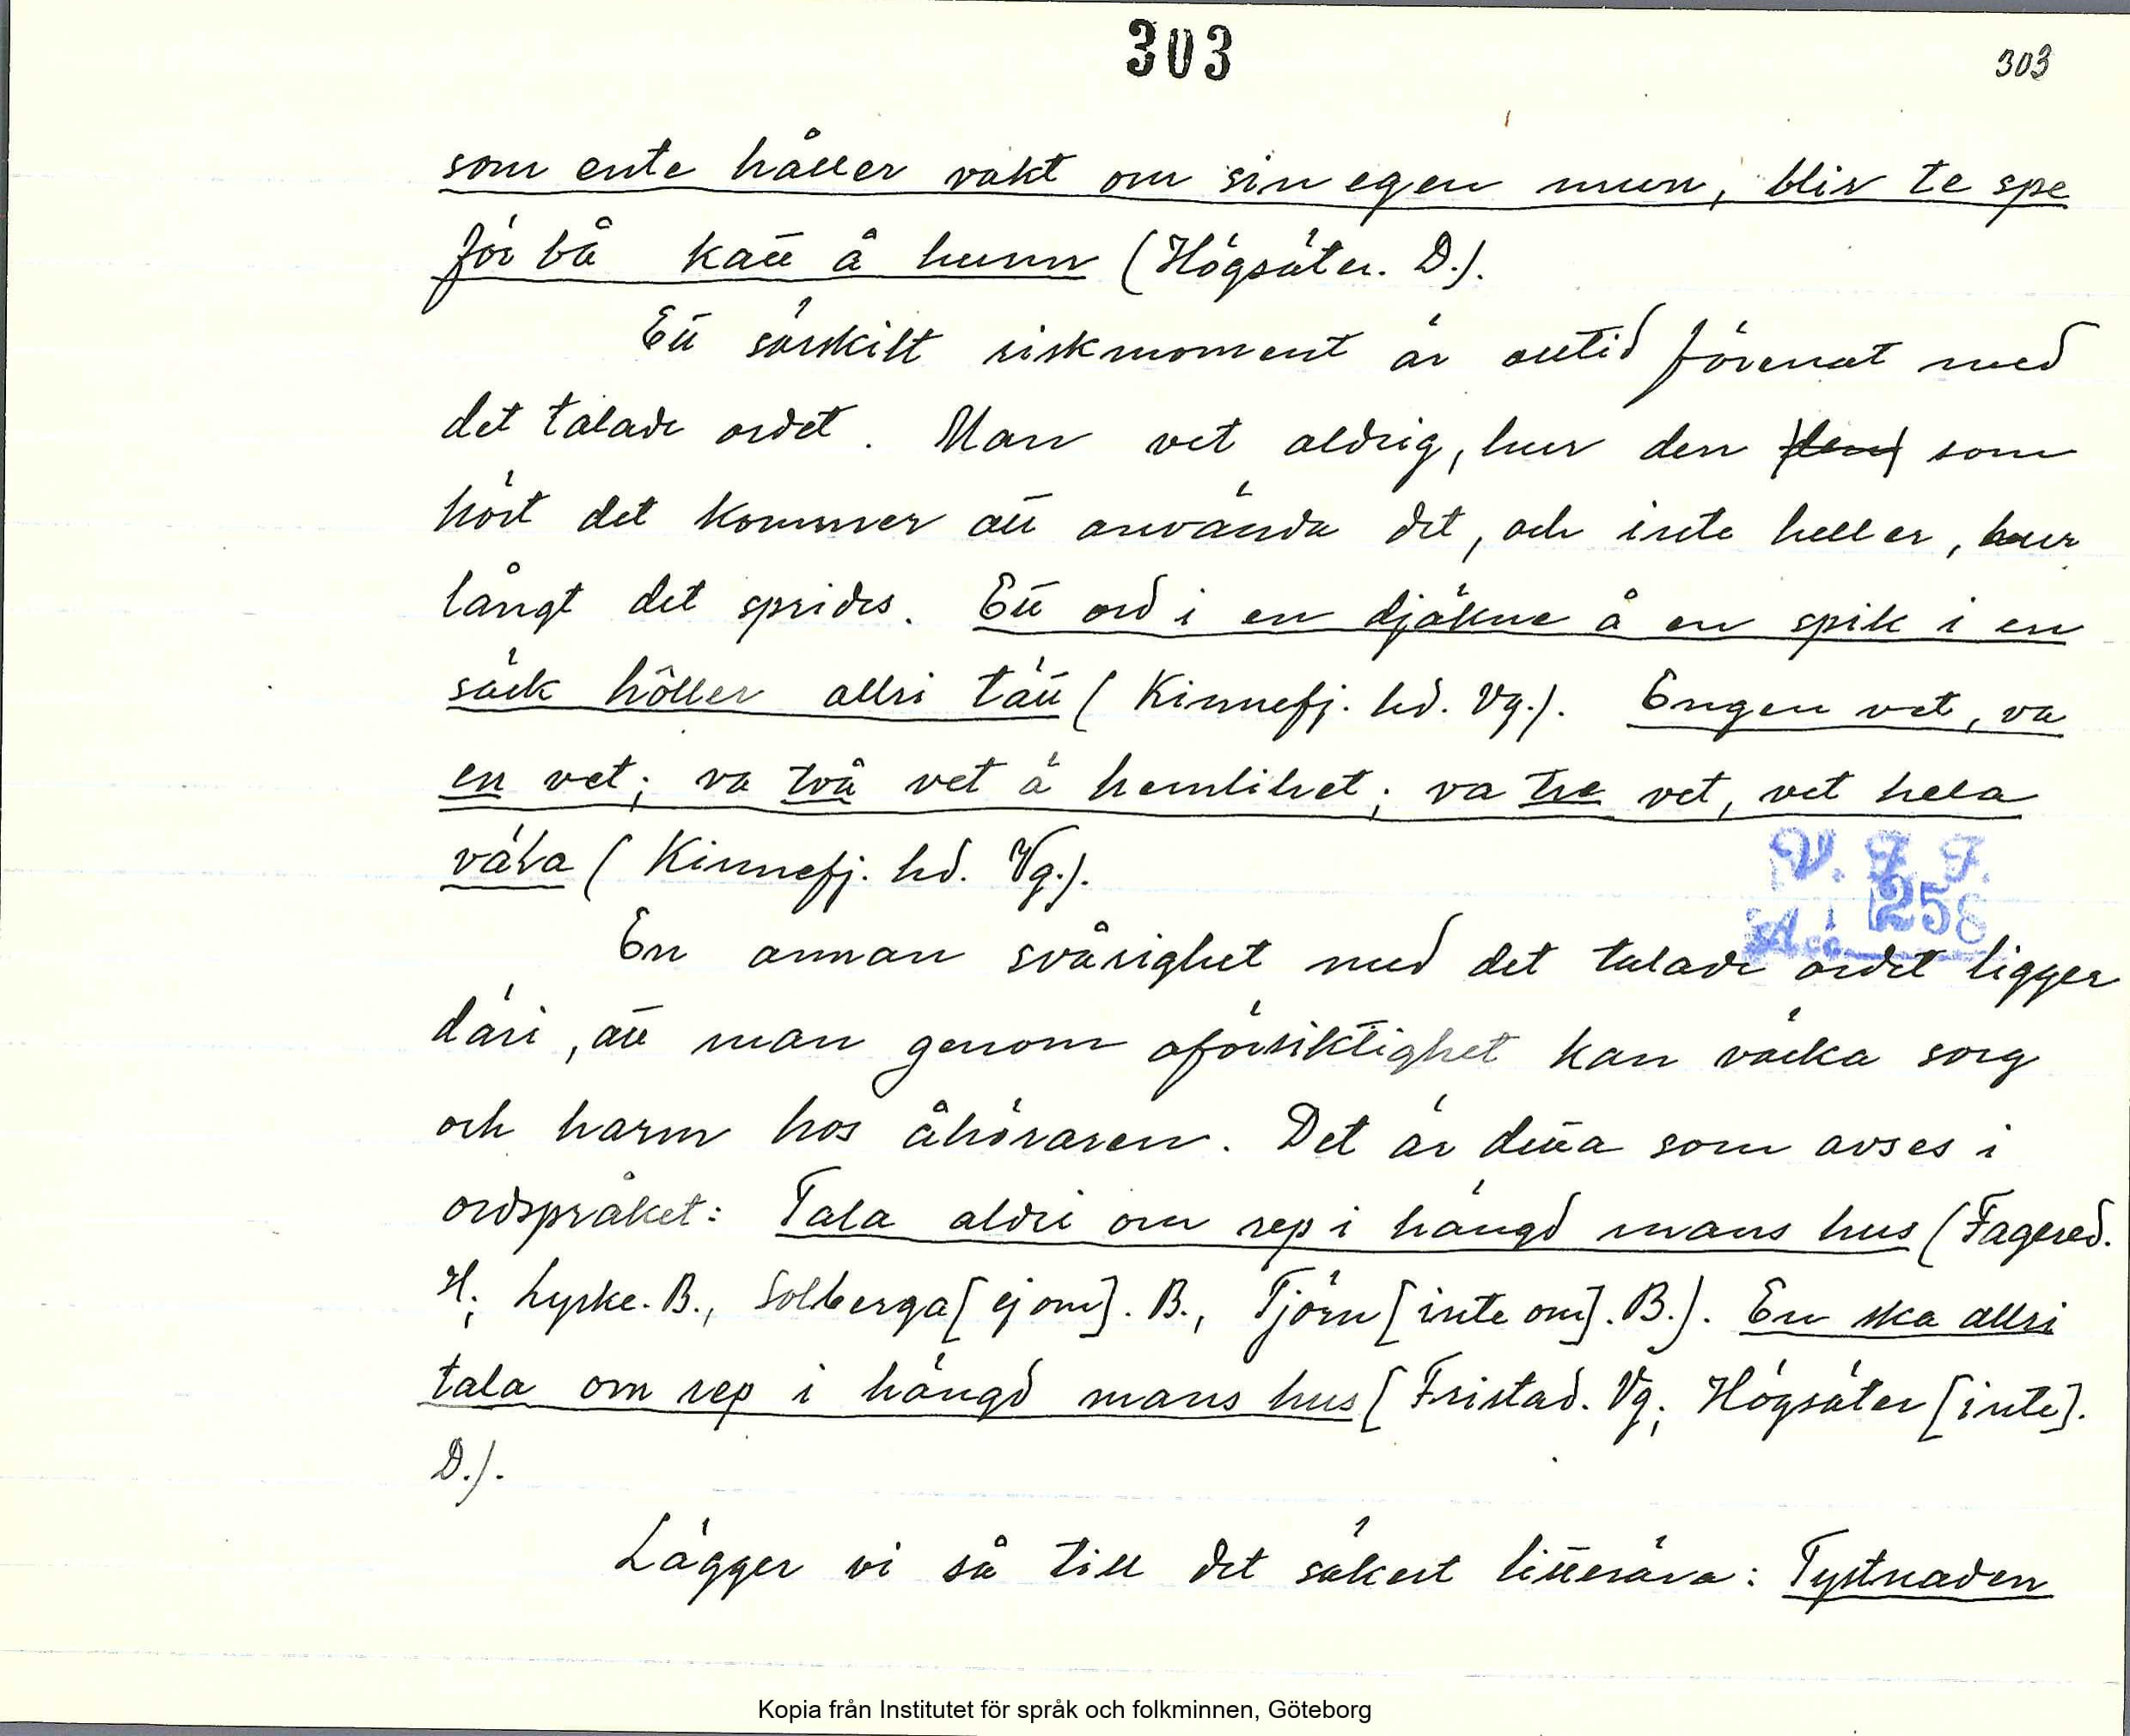 303
303
som ente håller vakt om sin egen mun, blir te spe
för bå katt å hunn (Högsäter. D.).
Ett särskilt riskmoment är alltid förenat med
det talade ordet. Man vet aldrig, hur den den som
hört det kommer att använda det, och inte heller, hur
långt det sprides. Ett ord i en djäkne å en spik i en
säck höller allri tätt (Kinnefj. hd. Vg.). Engen vet, va
en vet; va två vet ä hemlihet; va tre vet, vet hela
väla (Kinnefj. hd. Vg.).
V. F. F.
1258
Acc.
En annan svårighet med det talade ordet ligger
däri, att man genom oförsiktighet kan väcka sorg
och harm hos åhöraren. Det är detta som avses i
ordspråket: Tala aldri om rep i hängd mans hus (Fagered.
H; Lyrke. B., Solberga [ej om]. B., Tjörn [inte om]. B.). En ska allri
tala om rep i hängd mans hus (Fristad. Vg; Högsäter [inte].
D.).
Lägger vi så till det säkert litterära: Tystnaden
Kopia från Institutet för språk och folkminnen, Göteborg